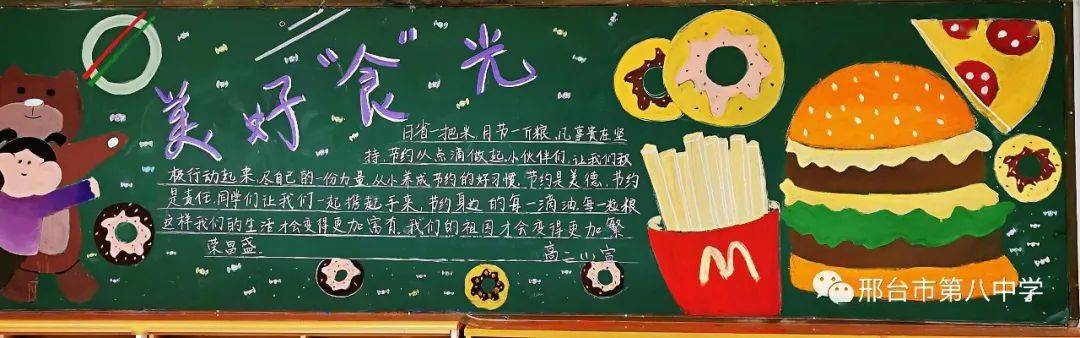 美好"食"光
日省一把米,月节一斤粮,凡事贵在坚
持,节约从点滴做起,小伙伴们,让我们积
极行动起来,尽自己的一份力量,从小养成节约的好习惯,节约是美德,节约
是责任,同学们让我们一起携起手来,节约身边的每一滴油,每一粒粮
这样我们的生活才会变得更加富有,我们的祖国才会变得更加繁
荣昌盛.
高二
M
邢台市第八中学